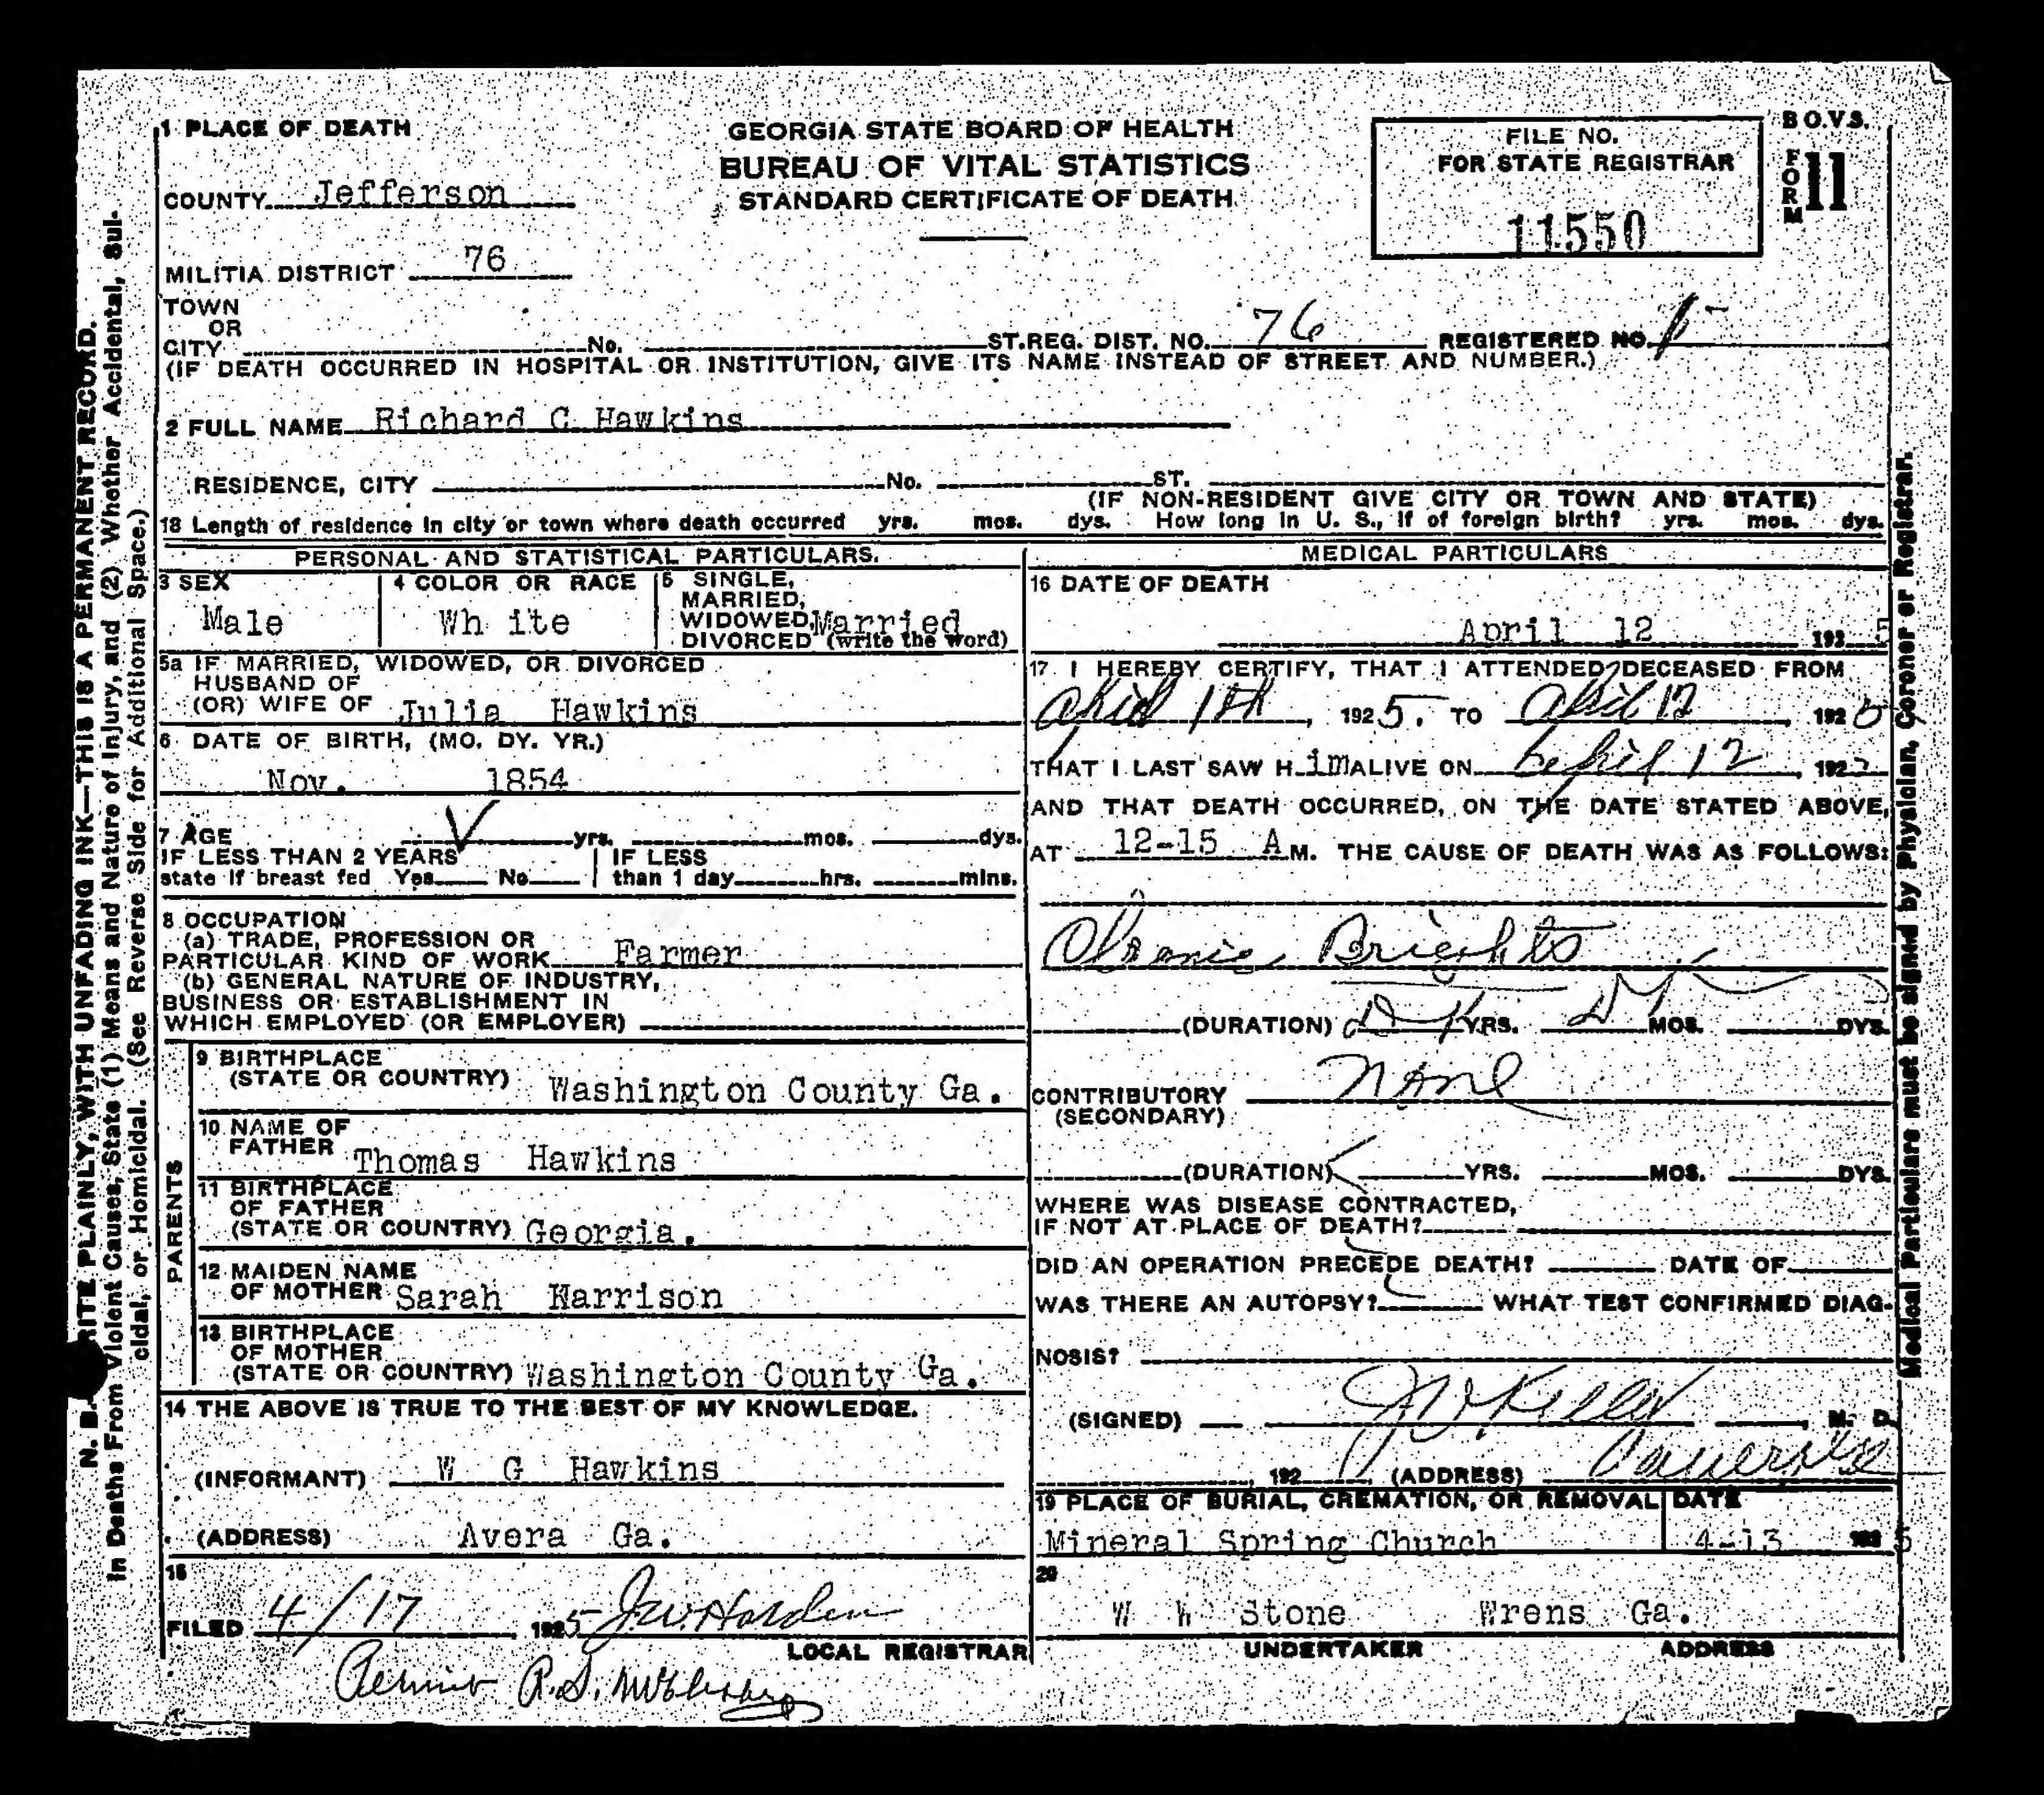 1 PLACE OF DEATH
COUNTY Jefferson
MILITIA DISTRICT 76
TOWN
OR
CITY No. ST. REG. DIST. NO. 76 REGISTERED NO.
(IF DEATH OCCURRED IN HOSPITAL OR INSTITUTION, GIVE ITS NAME INSTEAD OF STREET AND NUMBER.)
GEORGIA STATE BOARD OF HEALTH
BUREAU OF VITAL STATISTICS
STANDARD CERTIFICATE OF DEATH
FILE NO.
FOR STATE REGISTRAR
11550
B.O.V.S.
FORM 11
2 FULL NAME Richard C. Hawkins
RESIDENCE, CITY No. ST.
(IF NON-RESIDENT GIVE CITY OR TOWN AND STATE)
18 Length of residence in city or town where death occurred yrs. mos. dys. How long in U. S., if of foreign birth? yrs. mos. dys.
PERSONAL AND STATISTICAL PARTICULARS.
3 SEX
Male
4 COLOR OR RACE
Wh ite
5 SINGLE,
MARRIED,
WIDOWED, Married
DIVORCED (write the word)
5a IF MARRIED, WIDOWED, OR DIVORCED
HUSBAND OF
(OR) WIFE OF Julia Hawkins
6 DATE OF BIRTH, (MO. DY. YR.)
Nov. 1854
7 AGE yrs. mos. dys.
IF LESS THAN 2 YEARS
state if breast fed Yes No
IF LESS
than 1 day hrs. mins.
8 OCCUPATION
(a) TRADE, PROFESSION OR
PARTICULAR KIND OF WORK Farmer
(b) GENERAL NATURE OF INDUSTRY,
BUSINESS OR ESTABLISHMENT IN
WHICH EMPLOYED (OR EMPLOYER)
9 BIRTHPLACE
(STATE OR COUNTRY) Washington County Ga.
PARENTS
10 NAME OF
FATHER Thomas Hawkins
11 BIRTHPLACE
OF FATHER
(STATE OR COUNTRY) Georgia.
12 MAIDEN NAME
OF MOTHER Sarah Harrison
13 BIRTHPLACE
OF MOTHER
(STATE OR COUNTRY) Washington County Ga.
14 THE ABOVE IS TRUE TO THE BEST OF MY KNOWLEDGE.
(INFORMANT) W G Hawkins
(ADDRESS) Avera Ga.
15
FILED 4/17 1925 J.W. Harden
LOCAL REGISTRAR
R.S.
MEDICAL PARTICULARS
16 DATE OF DEATH
April 12 192 5
17 I HEREBY CERTIFY, THAT I ATTENDED DECEASED FROM
April , 1925. TO April 12 192
THAT I LAST SAW H im ALIVE ON April 12, 192
AND THAT DEATH OCCURRED, ON THE DATE STATED ABOVE,
AT 12-15 A M. THE CAUSE OF DEATH WAS AS FOLLOWS:
Chronic Brights
(DURATION) DK YRS. DK MOS. DYS.
CONTRIBUTORY None
(SECONDARY)
(DURATION) YRS. MOS. DYS.
WHERE WAS DISEASE CONTRACTED,
IF NOT AT PLACE OF DEATH?
DID AN OPERATION PRECEDE DEATH? DATE OF
WAS THERE AN AUTOPSY? WHAT TEST CONFIRMED DIAG-
NOSIS?
(SIGNED) M. D.
, 192 , (ADDRESS)
19 PLACE OF BURIAL, CREMATION, OR REMOVAL DATE
Mineral Spring Church 4-13 192 5
20
W W Stone Wrens Ga.
UNDERTAKER ADDRESS
N. B. WRITE PLAINLY, WITH UNFADING INK—THIS IS A PERMANENT RECORD.
In Deaths From Violent Causes, State (1) Means and Nature of Injury, and (2) Whether Accidental, Sui-
cidal, or Homicidal. (See Reverse Side for Additional Space.)
Medical Particulars must be signed by Physician, Coroner or Registrar.